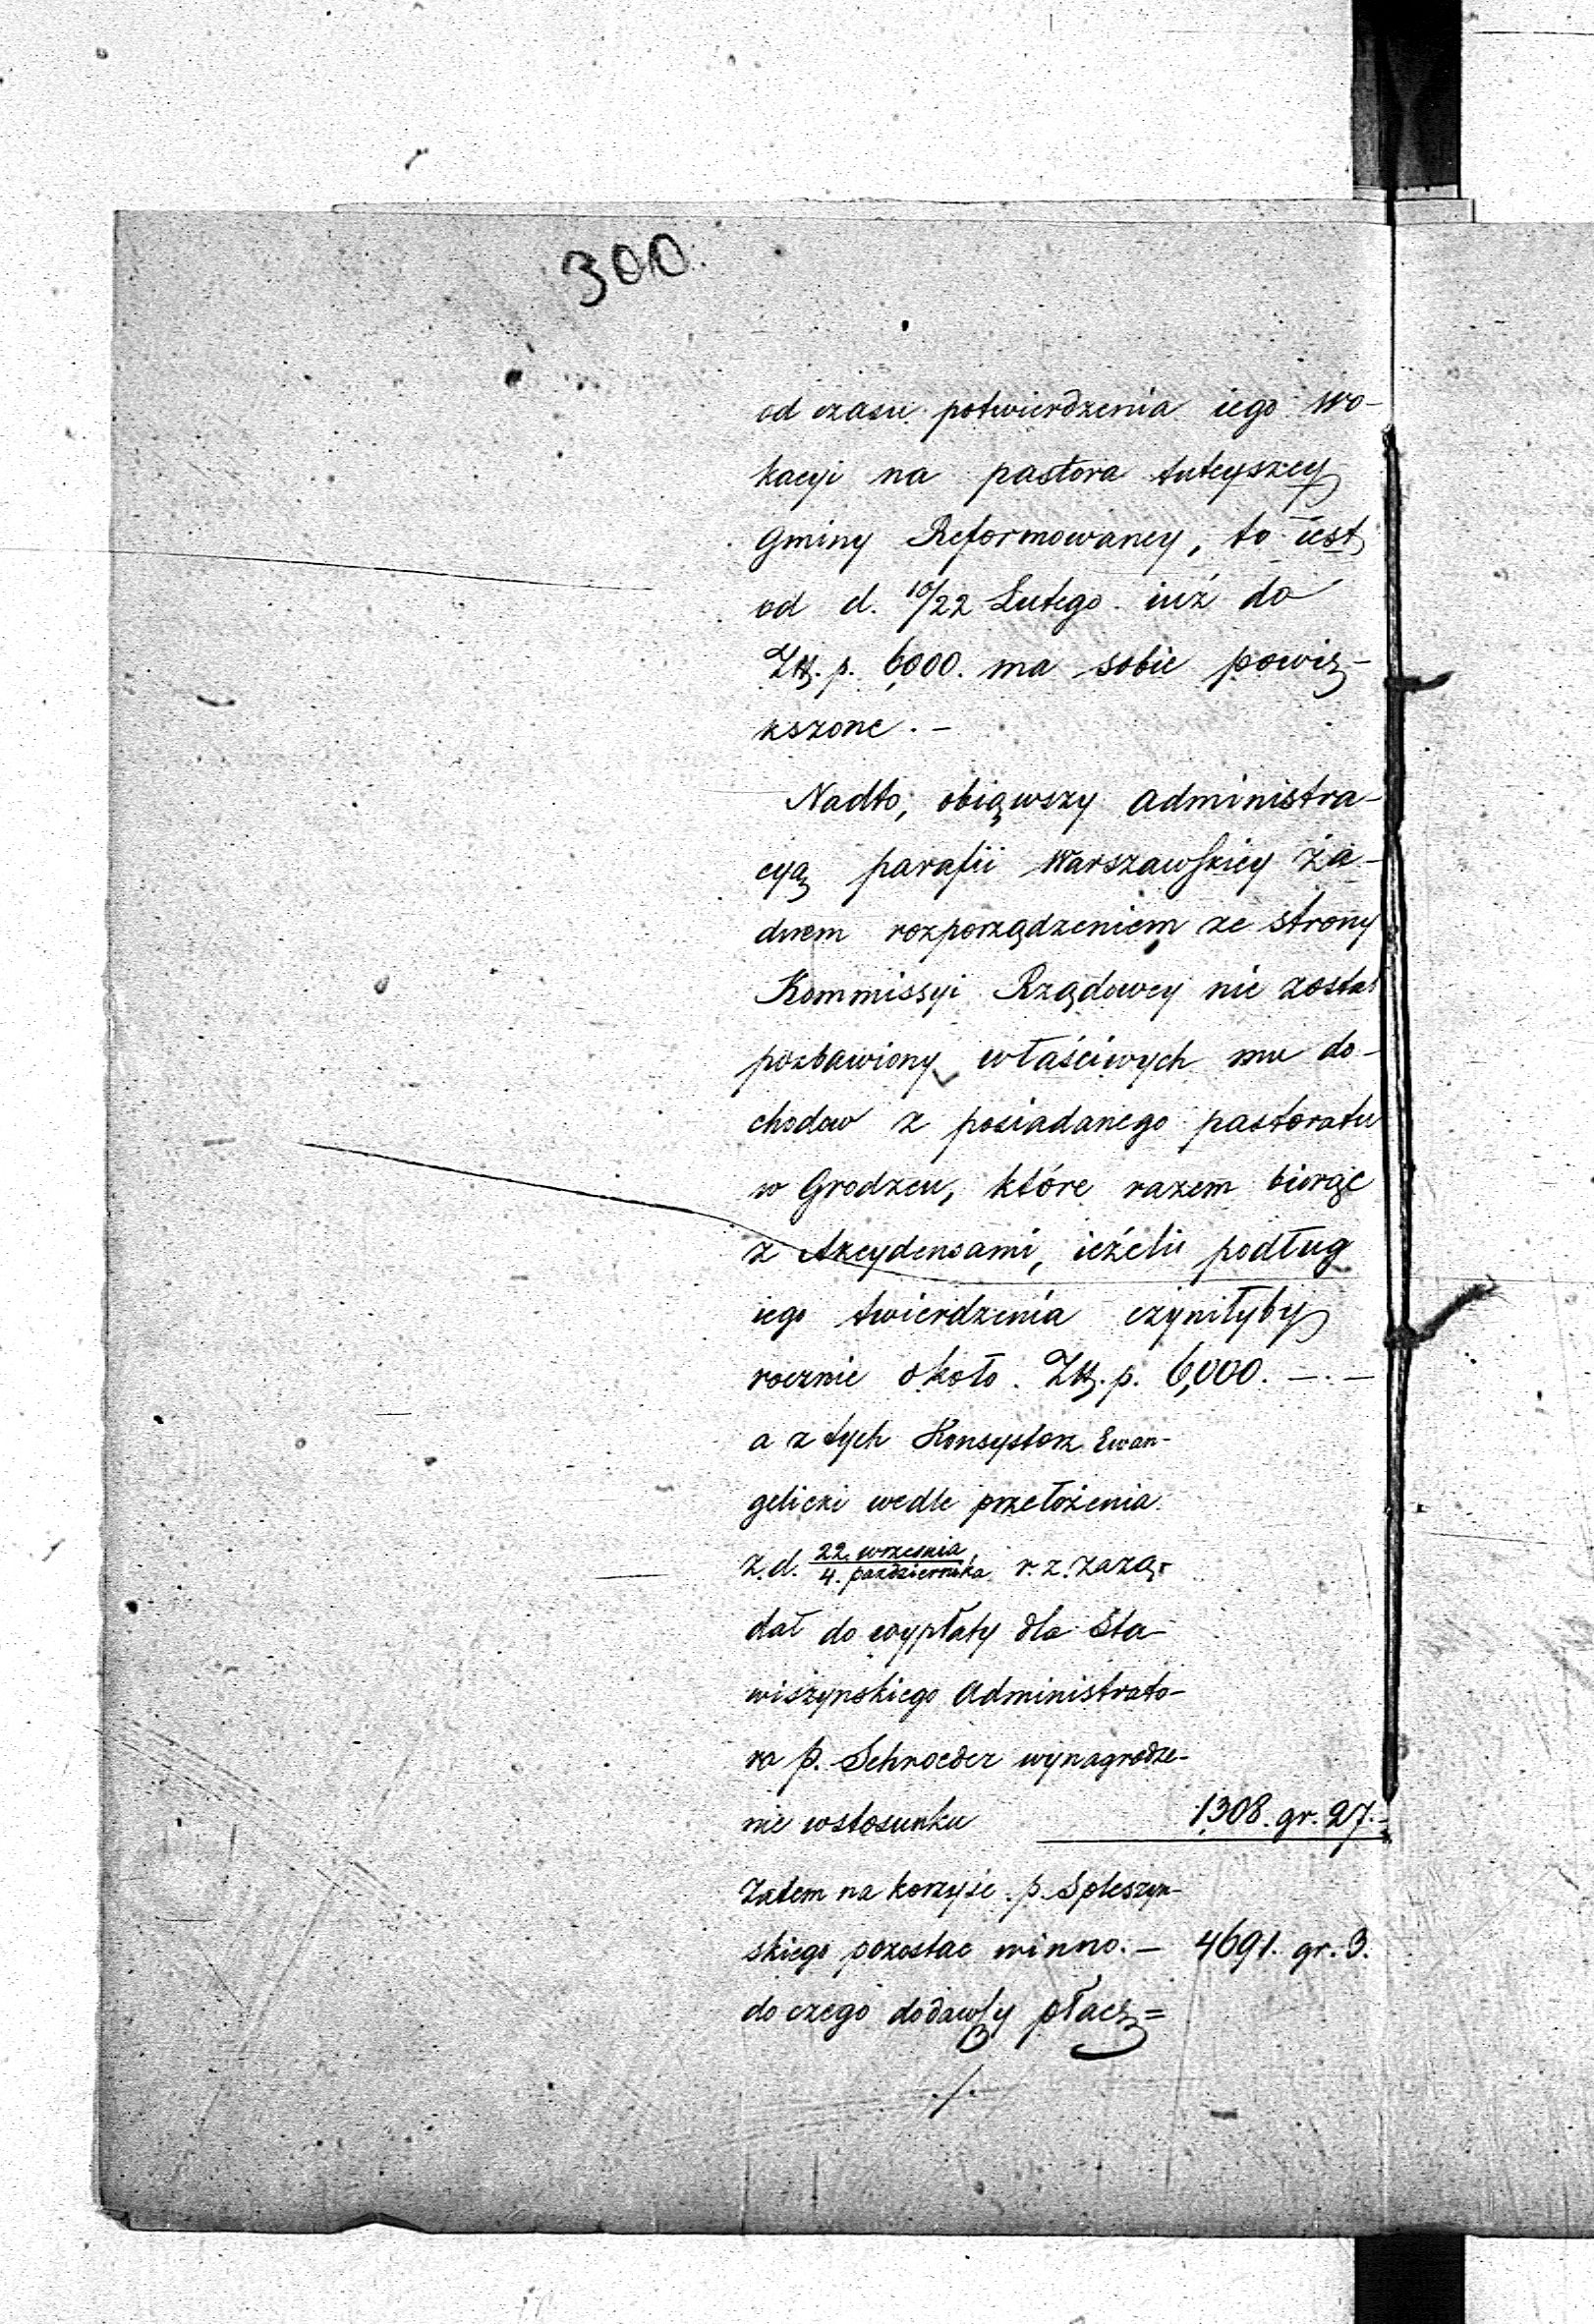 300.
od czasu potwierdzenia iego wo-
kacyi na pastora tuteyszey
Gminy Reformowaney, to iest
od d. 10/22 Lutego iuż do
Złł. p. 6,000. ma sobie powię-
kszone. -
Nadto, obiąwszy administra-
cyą parafii Warszawskiey ża-
dnem rozporządzeniem ze strony
Kommissyi Rządowey nie został
pozbawiony właściwych mu do-
chodow z posiadanego pastoratu
w Grodzcu, które razem biorąc
z Akcydensami, ieżeli podług
iego twierdzenia czyniłyby
rocznie około Złł. p. 6,000. -.-
a z tych Konsystorz Ewan-
gelicki wedle przełożenia
z. d. 22. września / 4. października r. z. zażą-
dał do wypłaty dla Sta-
wiszynskiego Administrato-
ra p. Schroeder wynagrodze-
nie wstosunku 1,308. gr. 27.-
Zatem na korzyść p. Spleszyn-
skiego pozostac winno. - 4691. gr. 3.
do czego dodawszy płacę =
./.